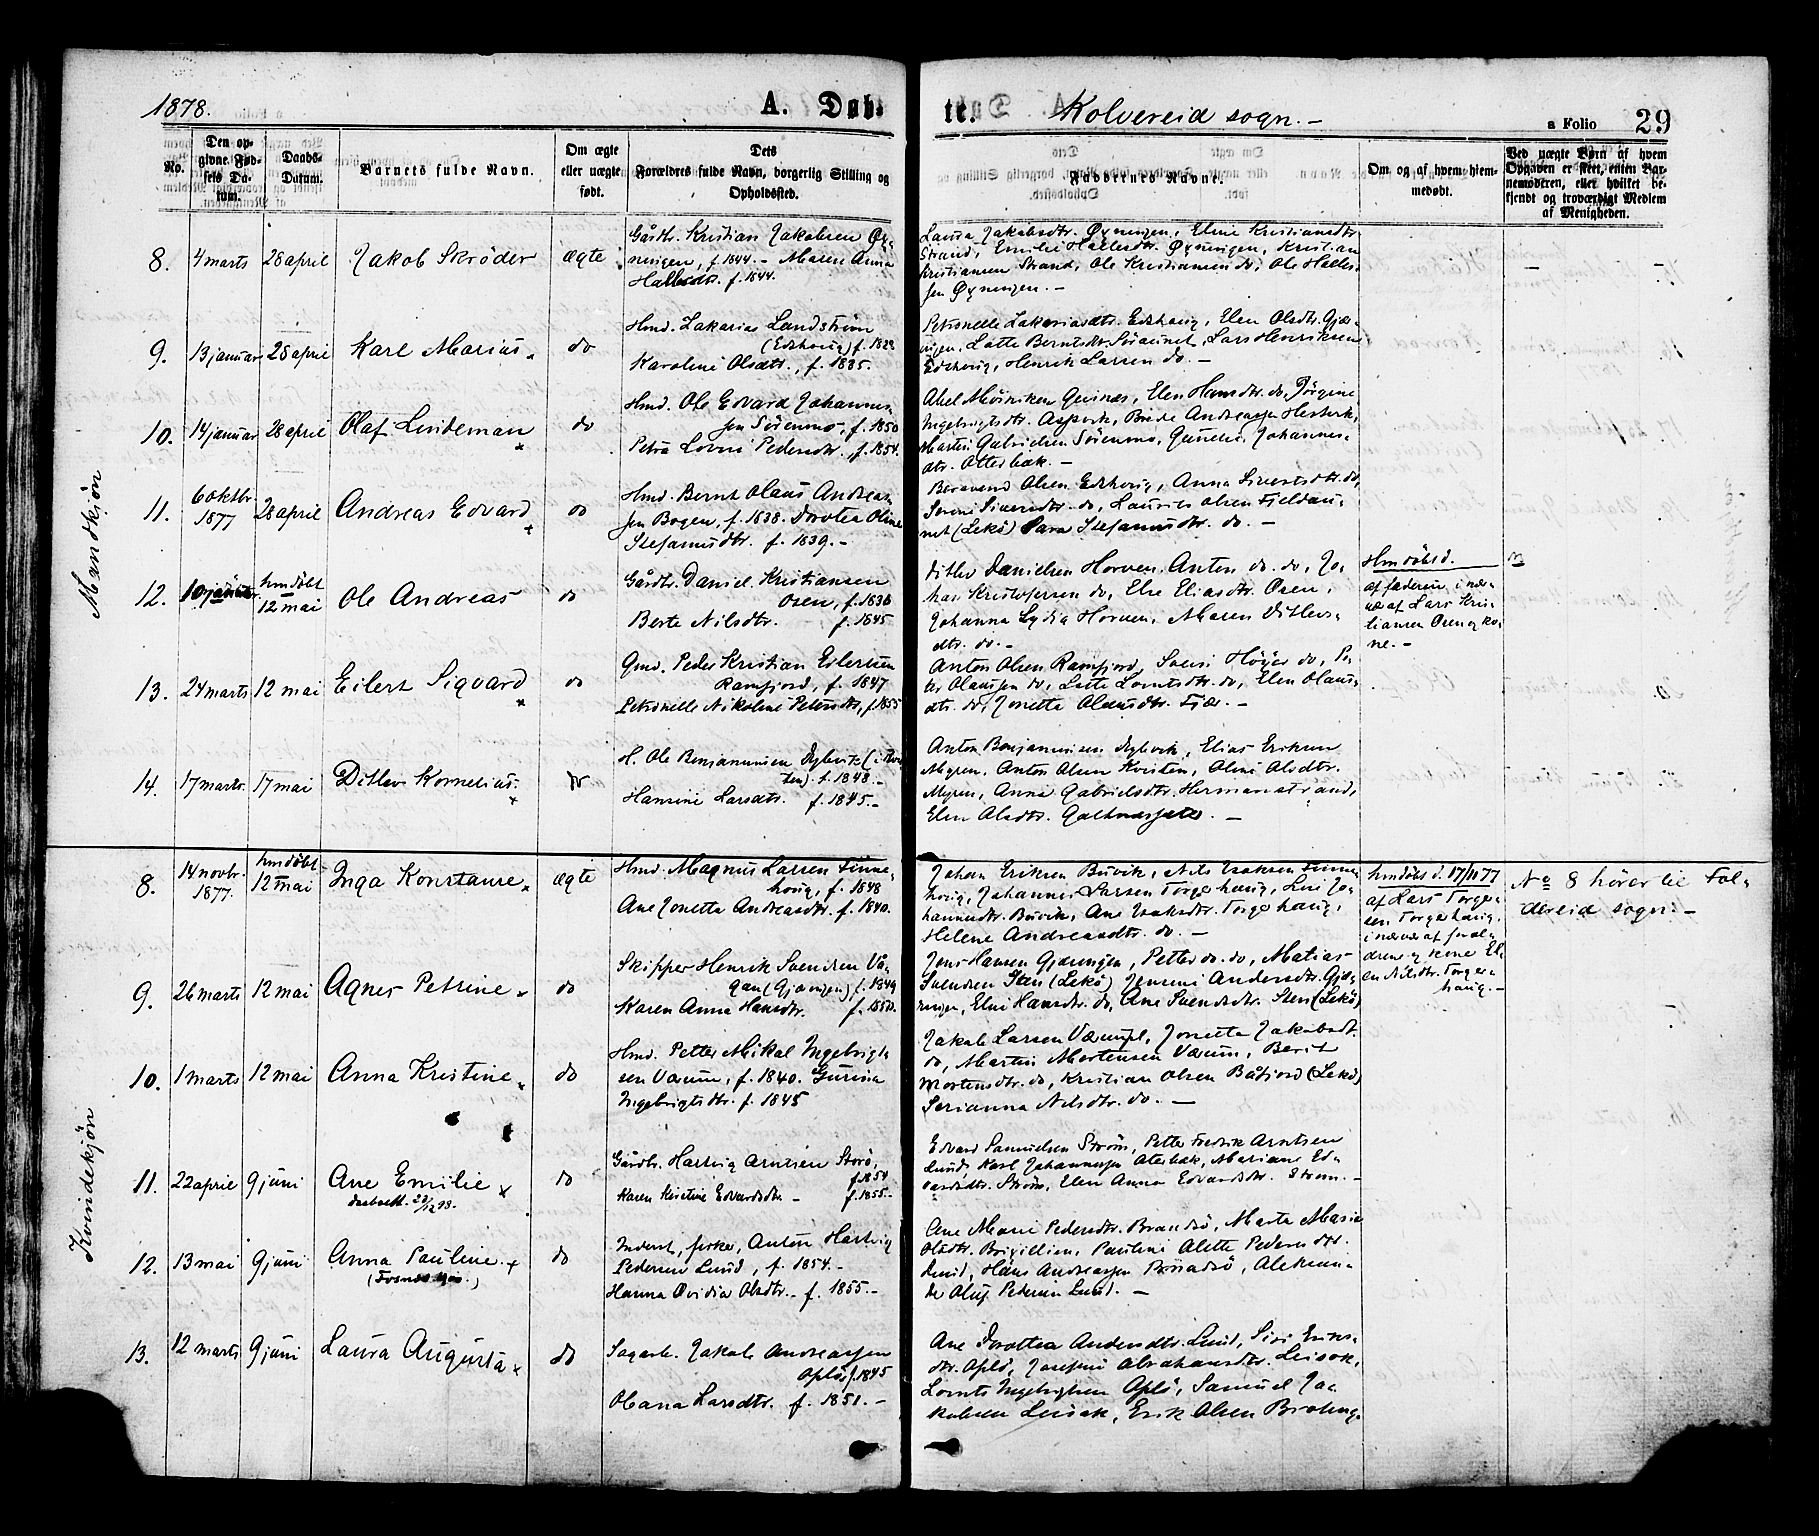 1878.
A. Døb-
te.
Kolvereid sogn. -
a Folio 29
No.
Den opgivne Fødsels Datum.
Daabs-Datum.
Barnets fulde Navn.
Om ægte eller uægte født.
Dets Forældres fulde Navn, borgerlig Stilling og Opholdssted.
Faddernes Navne.
Om og af hvem hjemmedøbt.
Ved uægte Børn af hvem Opgaven er skeet, enten Barnemoderen, eller hvilket bekjendt og troværdigt Medlem af Menigheden.
Mandkjøn
8. 4 marts 28 april Jakob Skrøder ægte
Gårdbr. Kristian Jakobsen Øy-
ningen, f. 1844. - Maren Anna
Hallesdtr. f. 1844.
Laura Jakobsdtr. Øyningen, Eline Kristiansdtr.
Strand, Emilie Hallesdtr. Øyningen, Kristian
Kristiansen Strand, Ole Kristiansen do, Ole Halles-
sen Øyningen. -
9. 13 januar 28 april Karl Marius do
Hmd. Zakarias Landstrøm
(Edshoug) f. 1828
Karoline Olsdtr., f. 1835.
Petronelle Zakariasdtr. Edshoug, Elen Olsdtr. Gjær-
ingen, Lotte Berntsdtr. Lars Henriksen
Edshoug, Henrik Larsen do. -
10. 14 januar 28 april Olaf Lindeman do
Hmd. Ole Edvard Johannes-
sen Sørenmo, f. 1850
Petra Lovise Pedersdtr., f. 1854.
Elen Hansdtr. do, Jørgine
Ingebrigtsdtr. Andreassen
Martin Gabrielsen Sørenmo, Johannes-
dtr. Otterbæk. -
11. 6 oktbr. 1877 28 april Andreas Edvard do
Hmd. Bernt Olaus Andreas-
sen Bogen, f. 1838. Dorotea Oline
Stefanusdtr. f. 1839. -
Olsen Edshoug, Anna Sivertsdtr. do,
Sivertsdtr. do, Laurits Olsen Fjeldau-
net (Lekø) Sara Stefanusdtr. do. -
12. hmdøbt 12 mai Ole Andreas do
Gårdbr. Daniel Kristiansen
Osen, f. 1836
Berte Nilsdtr. f. 1845
Ditlev Danielsen Horven, Anton do. do, Jo-
han Kristofersen do, Else Eliasdtr. Osen,
Johanna Lydia Horven, Maren Ditlevs-
dtr. do. -
Hmdøbt d.
af faderen i nær-
vær af Lars Kris-
tiansen Osen og ko-
ne. -
13. 24 marts 12 mai Eilert Sigvard do
Gmd. Peder Kristian Eilertsen
Ramfjord, f. 1847
Petronelle Nikoline Petersdtr, f. 1855
Anton Olsen Ramfjord, Høyer do, Pe-
ter Olaussen do, Lotte Lorntsdtr. do, Elen Olaus-
dtr. do, Jonetta Olausdtr. Fjær. -
14. 17 marts 17 mai Ditlev Kornelius do
H. Ole Benjaminsen Dybvik
f. 1848. -
Hansine Larsdtr. f. 1845. -
Anton Benjaminsen Dybvik, Elias Eriksen
Myren, Anton Olsen Kvisten, Oline Olsdtr.
Myren, Anna Gabrielsdtr. Hermanstrand,
Elen Olsdtr. -
Kvindekjøn
8. 14 novbr. 1877. hmdøbt 12 mai Inga Konstanse ægte
Hmd. Magnus Larsen Finne-
houg, f. 1848
Ane Jonetta Andreasdtr. f. 1840.
Johan Eriksen Buvik, Nils Isaksen Finne-
houg, Johannes Larsen Torgerhaug, Jo-
hannesdtr. Buvik, Ane Isaksdtr. Torgerhaug,
Helene Andreasdtr. do. -
hmdøbt d. 17/11 77
af Lars Torger-
sen Torgerhaug,
i nærvær af foræl-
drene og kone El-
en Nilsdtr. Torger-
haug. -
No 8 hører til Fol-
dereid sogn. -
9. 26 marts 12 mai Agnes Petrine do
Skipper Henrik Svendsen Vå-
gan (Gjæringen), f. 1849
Karen Anna Hansdtr. f. 1850.
Jens Hansen Gjæringen, Petter do. do, Matias
Svendsen Sten (Lekø) Andersdtr. Gjæ-
ringen, Eline Hansdtr. do, Ane Svendsdtr. Sten (Lekø)
10. 1 marts 12 mai Anna Kristine do
Hmd. Petter Mikal Ingebrigt-
sen Værum, f. 1840. Gurina
Ingebrigtsdtr. f. 1845
Jakob Larsen Værum, Jonetta Jakobsdt.
do, Martin Mortensen Værum, Berit
Mortensdtr. do, Kristian Olsen Båfjord (Lekø)
Serianna Nilsdtr. do. -
11. 22 april 9 juni Ane Emilie do
Gårdbr. Hartvig Arntsen Storø,
f. 1854
Karen Kristine Edvardsdtr. - f. 1855. -
Edvard Samuelsen Strøm, Petter Fredrik Arntsen
Lund, Karl Johannessen Oterbæk, Mariane Ed-
vardsdtr. Strøm, Elen Anna Edvardsdtr. Strøm. -
12. 13 mai 9 juni Anna Pauline do
Inderst, fisker, Anton Hartvig
Pedersen Lund, f. 1854. -
Hanna Ovidia Olsdtr. - f. 1855. -
Ane Marie Pedersdtr. Brandsø, Marta Maria
Olsdtr. Pauline Alette Pedersdtr.
Lund, Hans Andreassen Brandsø, Aleksan-
der Oluf Pedersen Lund. -
13. 12 marts 9 juni Laura Augusta do
Sagarb. Jakob Andreassen
Oplø, f. 1845
Oliana Larsdtr. f. 1851. -
Ane Dorottea Andersdtr. Lund, Siri Eriks-
dtr. Oplø, Josefine Abrahamsdtr. Leisok,
Lornts Ingebrigtsen Oplø, Samuel Ja-
kobsen Leisok, Erik Olsen